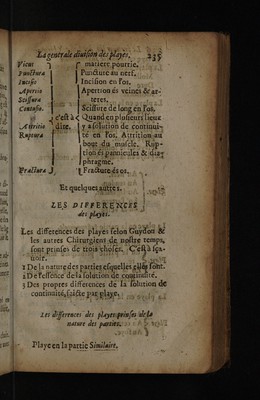 La generale diuision des playes, 235
Vlcus matiere pourrie.
Punctura Puncture au nerf.
Incisio Incision en l'os.
Apertio Apertion és veines & ar-
teres.
Scissura Scissure de long en l'os.
Contusio. c'est à Quand en plusieurs lieux
y a solution de continui-
Attritio dire. té en l'os, Attrition au
Ruptura bout du muscle. Rup-
tion és pannicules & dia-
phragme.
Fractura Fracture és os.
Et quelques autres.
LES DIFFERENCES
des playes.
Les differences des playes selon Guydon &
les autres Chirurgiens de nostre temps,
sont prinses de trois choses. C'est à sça-
uoir.
1 De la nature des parties esquelles elles sont.
2 De l'essence de la solution de continuité.
3 Des propres differences de la solution de
continuité, faicte par playe.
Les differences des playes prinses de la
nature des parties.
Playe en la partie Similaire,